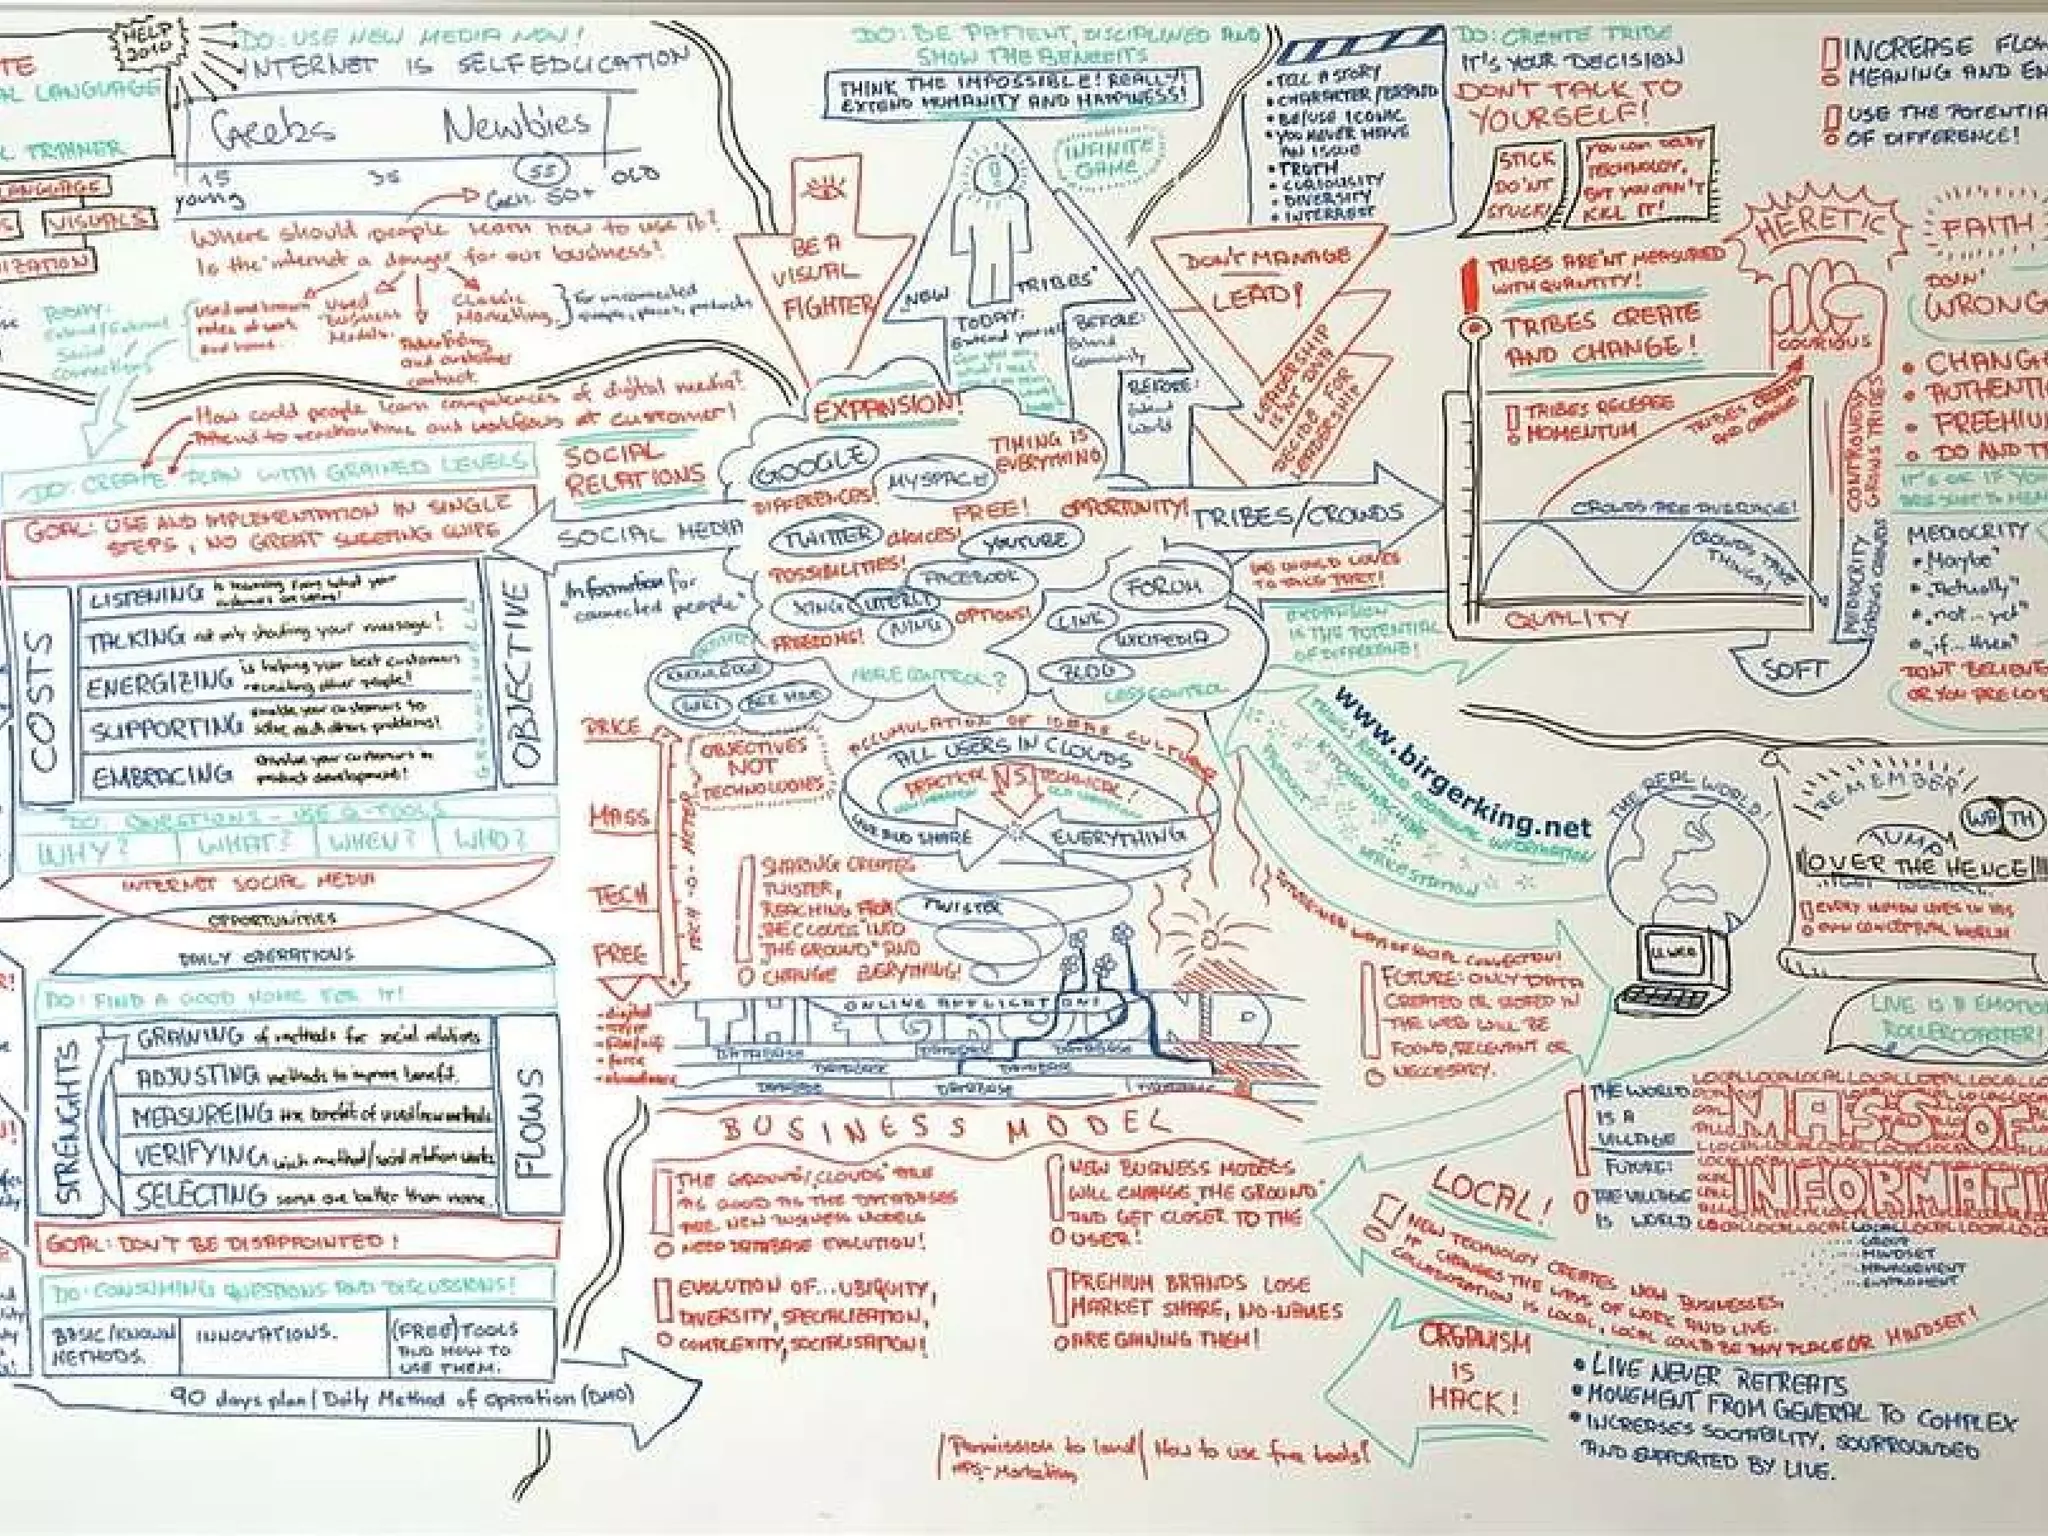 HELP 2010
DO: USE NEW MEDIA NOW!
INTERNET IS SELFEDUCATION
TE
AL LANGUAGE
L TRAINER
LANGUAGE
VISUALS
IZATION
Geebs Newbies
15 35 55 OLD
young
Gen. 50+
Where should people learn how to use it?
Is the internet a danger for our business?
used and known
roles at work
and home.
used
business
models.
Advertising
and customer
contact
Classic
Marketing
for unconnected
people, places, products
TODAY:
Extend/External
Social
connections
How could people learn competences of digital media?
and workflows at customer!
DO: CREATE PLAN WITH GRAINED LEVELS
GOAL: USE AND IMPLEMENTATION IN SINGLE
STEPS, NO GREAT SHEETING GUIDE
COSTS
LISTENING is learning from what your
customers are saying!
TALKING not only shouting your message!
ENERGIZING is helping your best customers
recruiting other people!
SUPPORTING enable your customers to
solve each others problems!
EMBRACING involve your customers in
product development!
OBJECTIVE
DO: QUESTIONS - USE Q-TOOLS
WHY? WHAT? WHEN? WHO?
INTERNET SOCIAL MEDIA
OPPORTUNITIES
DAILY OPERATIONS
DO: FIND A GOOD HOME FOR IT!
STRENGHTS
GRAWING of methods for social relations
ADJUSTING methods to improve benefit.
MEASUREING the benefit of used/new methods
VERIFYING which method/social relation works
SELECTING some are better than none.
FLOWS
GOAL: DON'T BE DISAPPOINTED!
DO: CONSUMING QUESTIONS AND DISCUSSIONS!
BASIC/KNOWN
METHODS.
INNOVATIONS.
(FREE) TOOLS
AND HOW TO
USE THEM.
90 days plan / Daily Method of Operation (DMO)
DO: BE PATIENT, DISCIPLINED AND
SHOW THE BENEFITS
THINK THE IMPOSSIBLE! REALLY!
EXTEND HUMANITY AND HAPPINESS!
INFINITE
GAME
BE A
VISUAL
FIGHTER
NEW TRIBES"
TODAY:
Extend yourself
BEFORE:
Extend
Community
BEFORE:
Extend
World
DON'T MANAGE
LEAD!
LEADERSHIP
ISN'T DATA
DECIDE FOR
LEADERSHIP
EXPANSION!
SOCIAL
RELATIONS
SOCIAL MEDIA
"Information for
"connected people"
GOOGLE
MYSPACE
TIMING IS
EVERYTHING
DIFFERENCES!
FREE!
OPPORTUNITY!
TWITTER
CHOICES!
YOUTUBE
POSSIBILITIES!
FACEBOOK
FORUM
XING
OPTIONS!
NING
FREEDOMS!
LINK
WIKIPEDIA
KNOWLEDGE
BLOG
MORE CONTROL?
LESS CONTROL
WIKI
BEE HIVE
TRIBES/CROWDS
THE WORLD LOVES
TO TAKE PART!
EXPANSION
IS THE POTENTIAL
OF DIFFERENCE!
TELL A STORY
CHARACTER/BRAND
BE/USE ICONIC
YOU NEVER HAVE
AN ISSUE
TRUTH
CURIOUSITY
DIVERSITY
INTEREST
DO: CREATE TRIBE
IT'S YOUR DECISION
DON'T TALK TO
YOURSELF!
STICK
DO'NT
STUCK!
YOU CAN DELAY
TECHNOLOGY,
BUT YOU CAN'T
KILL IT!
TRIBES AREN'T MEASURED
WITH QUANTITY!
TRIBES CREATE
AND CHANGE!
TRIBES RELEASE
MOMENTUM
TRIBES CREATE
AND CHANGE
CROWDS ARE AVERAGE!
CROWDS TAKE
THINGS!
QUALITY
INCREASE FLOW
MEANING AND EN
USE THE POTENTIA
OF DIFFERENCE!
HERETIC
FAITH
COURIOUS
CONTROVERSY
GROWS TRIBES
MEDIOCRITY
GROWS CROWDS
SOFT
DOIN'
WRONG
CHANGE
AUTHENTI
FREEMIUM
DO AND T
MEDIOCRITY
"Maybe"
"Actually"
"not...yet"
"if...then"
DON'T BELIEVE
OR YOU ARE LOS
PRICE
MASS
TECH
FREE
TECH-O-METER
OBJECTIVES
NOT
TECHNOLOGIES
ACCUMULATION OF IDEAS CULTURE
ALL USERS IN CLOUDS
PRACTICAL VS TECHNICAL!
LIVE AND SHARE EVERYTHING
SHARING CREATES
TWISTER,
REACHING FROM
THE CLOUDS INTO
"THE GROUND" AND
CHANGE EVERYTHING!
TWISTER
digital
force
abundance
ONLINE APPLICATIONS
THE GROUND
DATABASE DATABASE DATABASE
DATABASE DATABASE
DATABASE DATABASE DATABASE
BUSINESS MODEL
"THE GROUND/CLOUDS" ARE
AS GOOD AS THE DATABASES
ARE. NEW BUSINESS MODELS
NEED DATABASE EVOLUTION!
EVOLUTION OF... UBIQUITY,
DIVERSITY, SPECIALIZATION,
COMPLEXITY, SOCIALISATION!
NEW BUSINESS MODELS
WILL CHANGE "THE GROUND"
AND GET CLOSER TO THE
USER!
PREMIUM BRANDS LOSE
MARKET SHARE, NO-NAMES
ARE GAINING THEM!
Permission to land
How to use free tools?
www.birgerking.net
THE REAL WORLD!
U WEB
FUTURE: ONLY DATA
CREATED OR STORED IN
THE WEB WILL BE
FOUND, RELEVANT OR
NECESSARY.
REMEMBER
WATH
JUMP
OVER THE HENCE!!!
EVERY HUMAN LIVES IN HIS
OWN CONCEPTUAL WORLD!
LIVE IS A EMOTION
ROLLERCOASTER!
THE WORLD
IS A
VILLAGE
FUTURE:
THE VILLAGE
IS WORLD
MASS OF
INFORMATI
GROUP
MINDSET
MANAGEMENT
LOCAL!
NEW TECHNOLOGY CREATES NEW BUSINESSES.
IT CHANGES THE WAYS OF WORK AND LIVE.
COLLABORATION IS LOCAL, LOCAL COULD BE ANY PLACE OR MINDSET!
ORGANISM
IS
HACK!
LIVE NEVER RETREATS
MOVEMENT FROM GENERAL TO COMPLEX
INCREASES SOCIABILITY, SOURROUNDED
AND SUPPORTED BY LIVE.